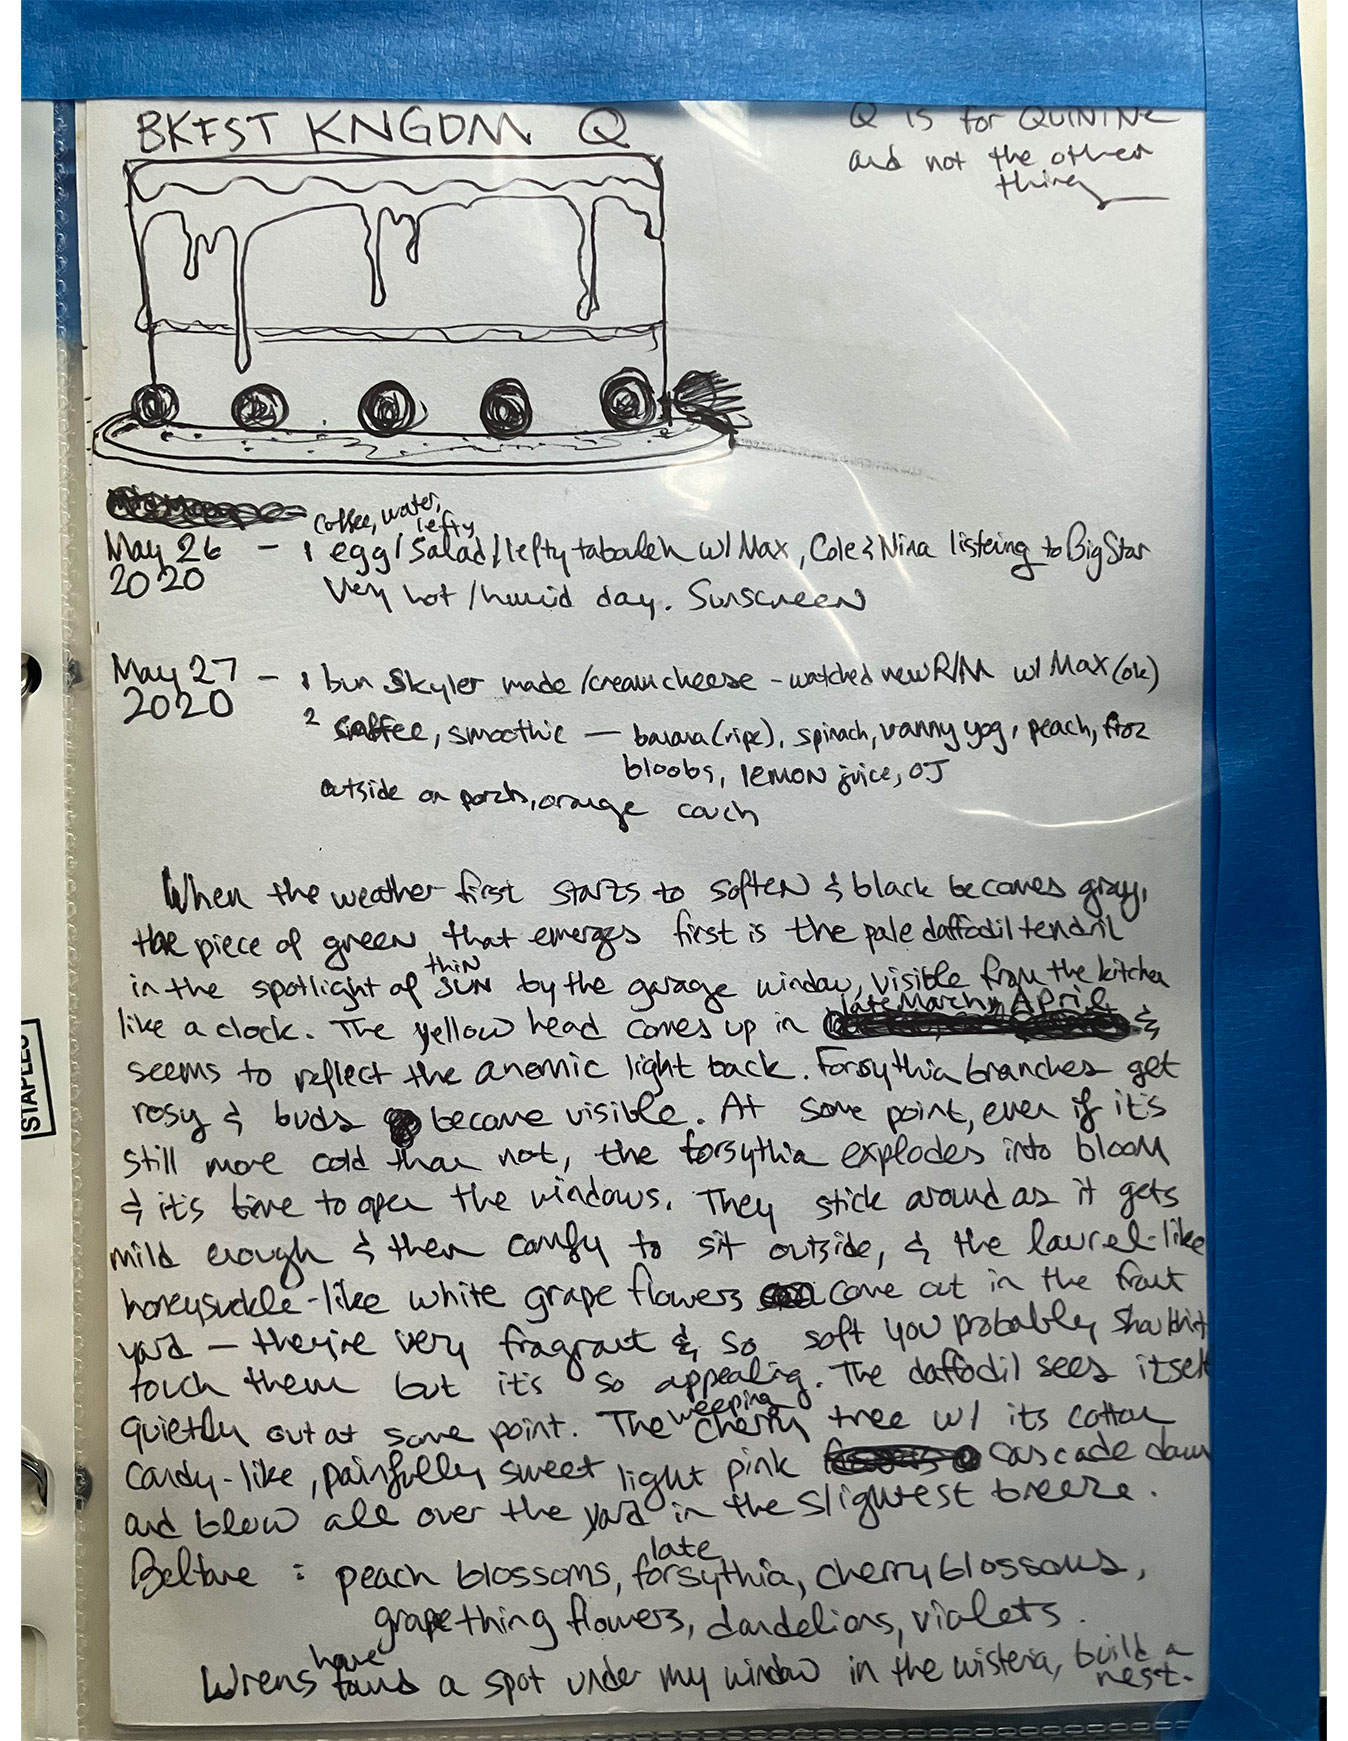 BKFST KNGDM Q
Q is for QUININE
and not the other
thing
coffee, water,
lefty
May 26 - 1 egg / salad / lefty tabouleh w/ Max, Cole & Nina listeing to Big Star
2020 Very hot / humid day. Sunscreen
May 27 - 1 bun Skyler made / cream cheese - watched new R/M w/ Max (ok)
2020
2 coffee, smoothie — banana (ripe), spinach, vanny yog, peach, froz
bloobs, lemon juice, OJ
outside on porch, orange couch
When the weather first starts to soften & black becomes gray,
the piece of green that emerges first is the pale daffodil tendril
thin
in the spotlight of sun by the garage window, visible from the kitchen
late March, April
like a clock. The yellow head comes up in &
seems to reflect the anemic light back. Forsythia branches get
rosy & buds become visible. At some point, even if it's
still more cold than not, the forsythia explodes into bloom
& it's time to open the windows. They stick around as it gets
mild enough & then comfy to sit outside, & the laurel-like
honeysuckle-like white grape flowers come out in the front
yard — they're very fragrant & so soft you probably shouldn't
touch them but it's so appealing. The daffodil sees itself
weeping
quietly out at some point. The cherry tree w/ its cotton
candy-like, painfully sweet light pink cascade down
and blow all over the yard in the slightest breeze.
late
Beltane : peach blossoms, forsythia, cherry blossoms,
grape thing flowers, dandelions, violets.
have
Wrens found a spot under my window in the wisteria, build a
nest.
STAPLES